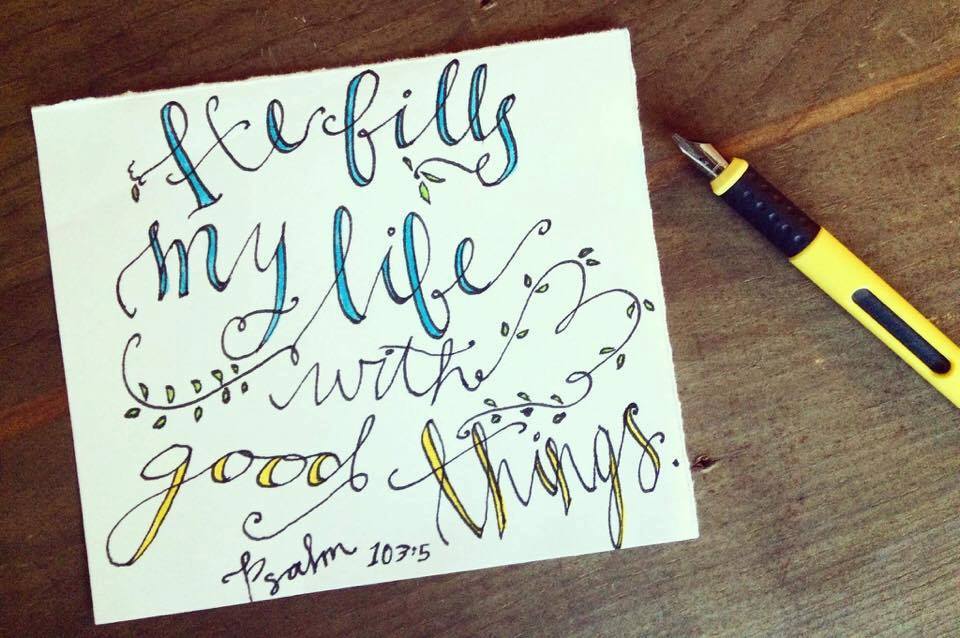 He fills
my life
with
good things.
Psalm 103:5